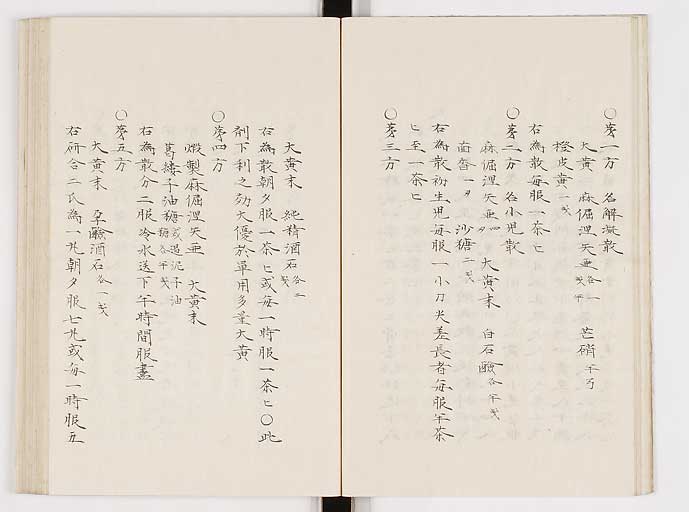 ○第一方　名解凝散
大黄　麻倔涅矢亜各二戔半　芒硝半弓
橙皮黄一戔
右為散毎服一茶匕
○第二方　名小児散
麻倔涅矢亜四タ　大黄末　白石鹸各半戔
茴香一タ　沙糖二戔
右為散初生児毎服一小刀尖差長者毎服半茶
匕至一茶匕
○第三方
大黄末　純精酒石各二戔
右為散朝夕服一茶匕或毎一時服一茶匕○此
剤下利之効大優於単用多量大黄
○第四方
煅製麻倔涅矢亜　大黄末
葛縷子油糖或遏泥子油糖各半戔
右為散分二服冷水送下午時間服盡
○第五方
大黄末　孕鹸酒石各一戔
右研合二氏為一丸朝夕服七丸或毎一時服五